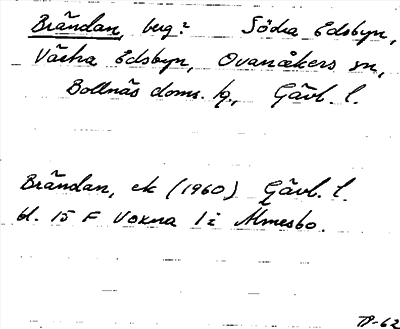 Brändan, berg: Södra Edsbyn,
Västra Edsbyn, Ovanåkers sn,
Bollnäs doms. hg, Gävl. l.
Brändan, ek (1960) Gävl. l.
bl. 15 F Voxna 1 i Älmesbo.
TP-62